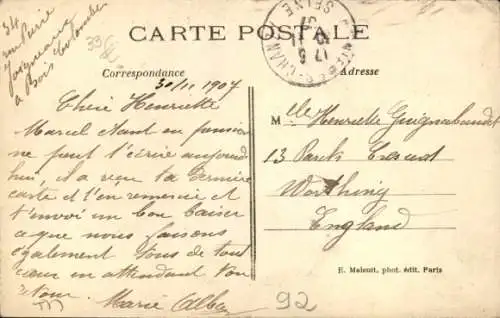 34
rue Pierre
Joigneaux
à Bois Colombes
CARTE POSTALE
Correspondance
Adresse
SEINE
30/11 1907
Chère Henriette
Marcel étant en pension
ne peut t'écrire aujourd
hui, il a reçu ta dernière
carte et t'en remercie et
t'envoi un bon baiser
ce que nous faisons
également tous de tout
cœur en attendant ton
retour.
Marie Alber
Mlle Henriette Guignabaudet
13 Park Crescent
Worthing
England
E. Malcuit, phot. édit. Paris
92